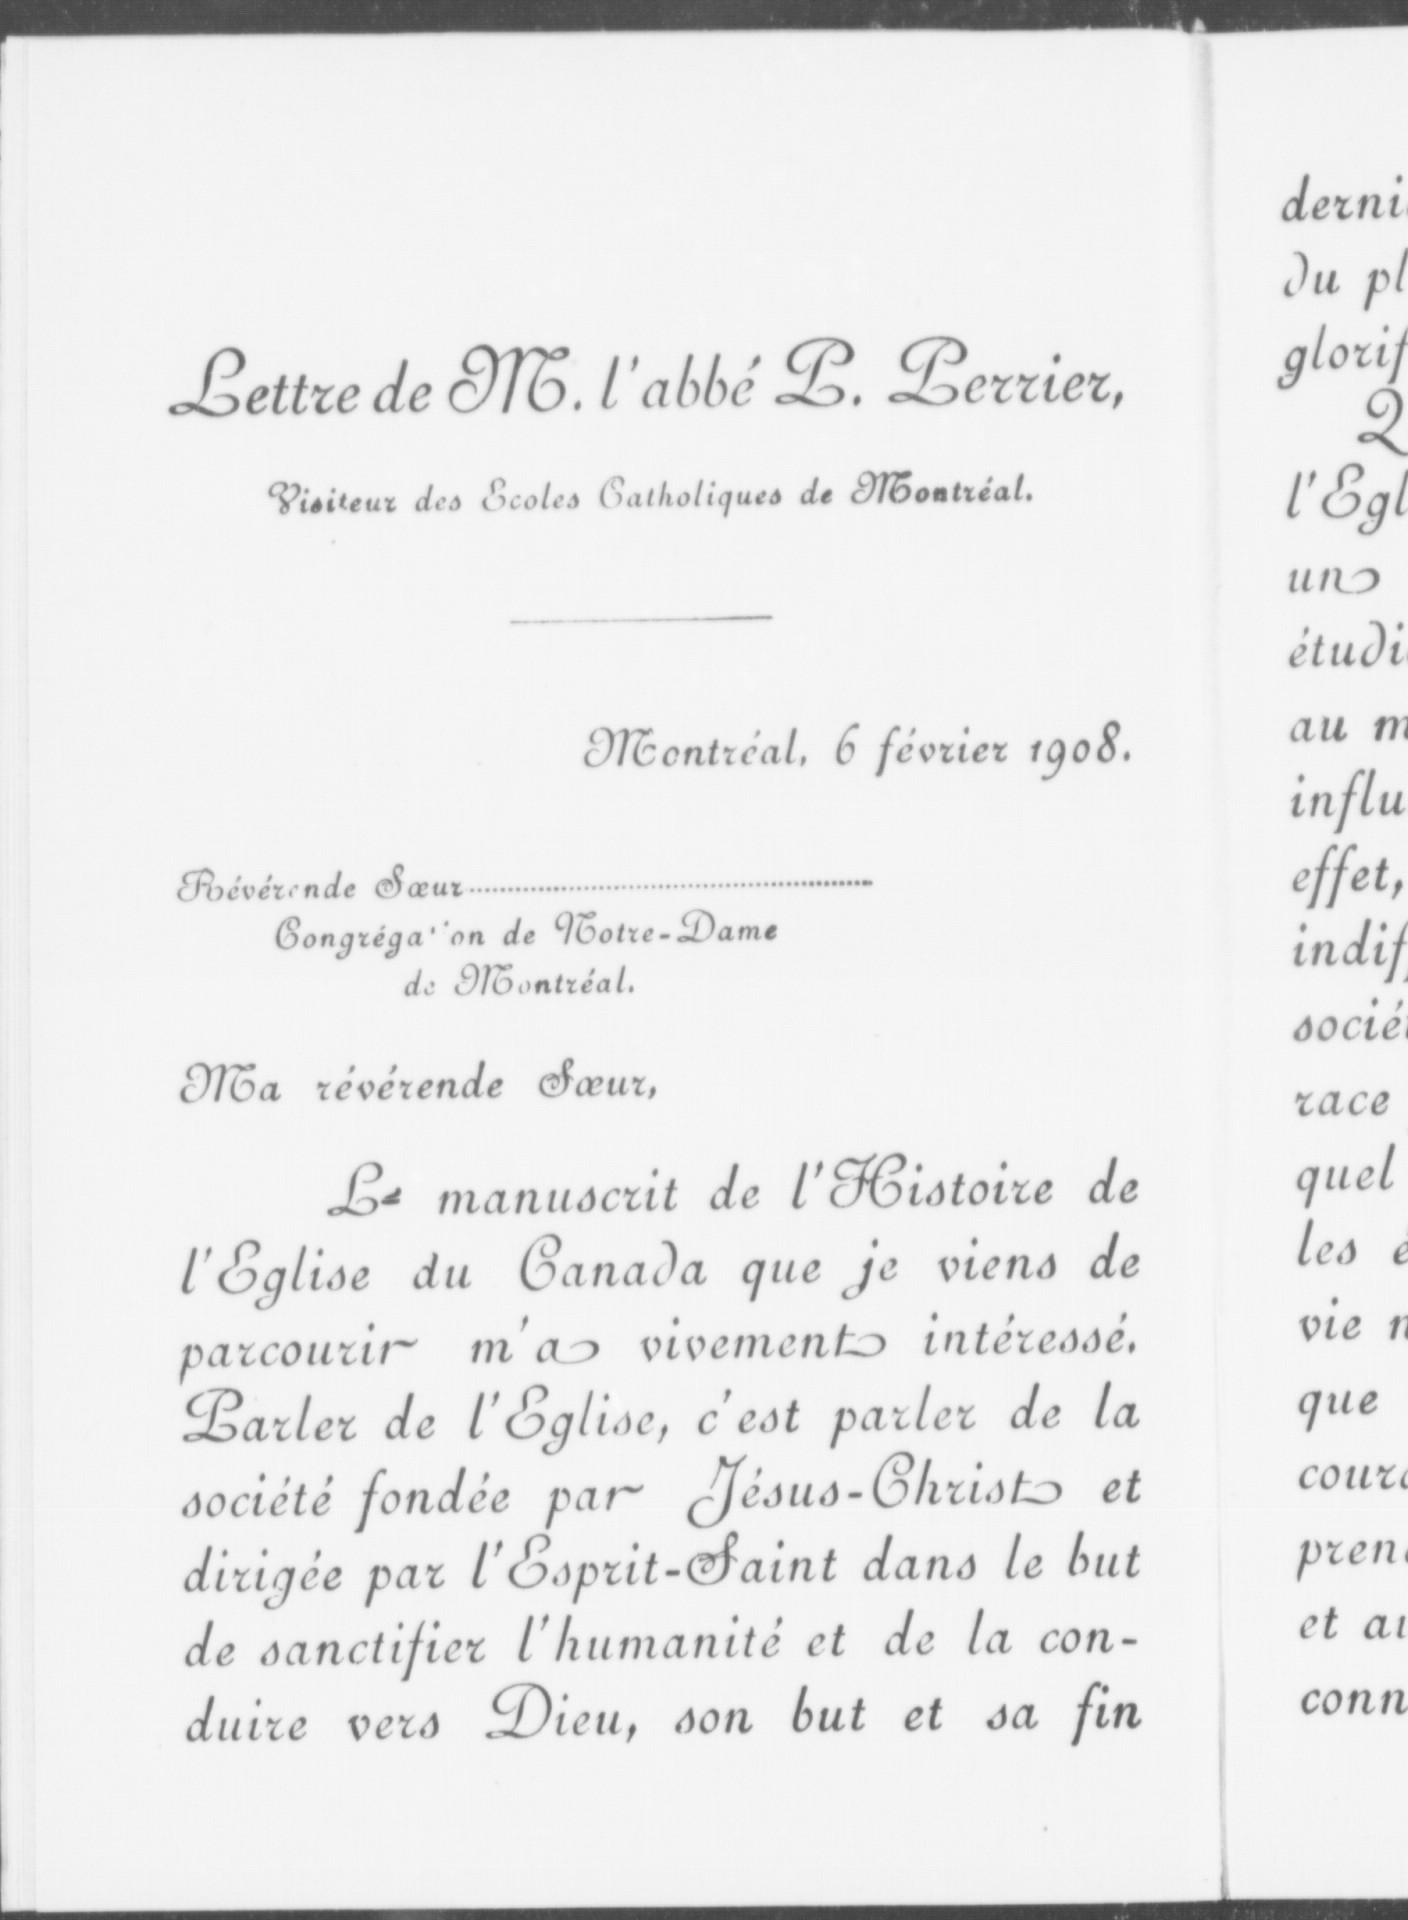 Lettre de M. l'abbé P. Perrier,
Visiteur des Ecoles Catholiques de Montréal.
Montréal, 6 février 1908.
Révérende Sœur
Congrégation de Notre-Dame
de Montréal.
Ma révérende Sœur,
Le manuscrit de l'Histoire de
l'Eglise du Canada que je viens de
parcourir m'a vivement intéressé.
Parler de l'Eglise, c'est parler de la
société fondée par Jésus-Christ et
dirigée par l'Esprit-Saint dans le but
de sanctifier l'humanité et de la con-
duire vers Dieu, son but et sa fin
du
un
au
effet,
race
quel
les
vie
que
et